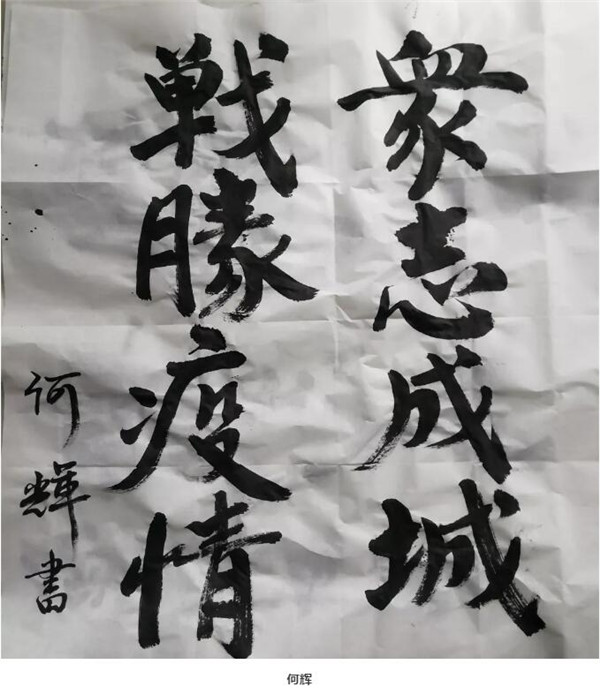 衆志成城
戦勝疫情
何輝書
何辉